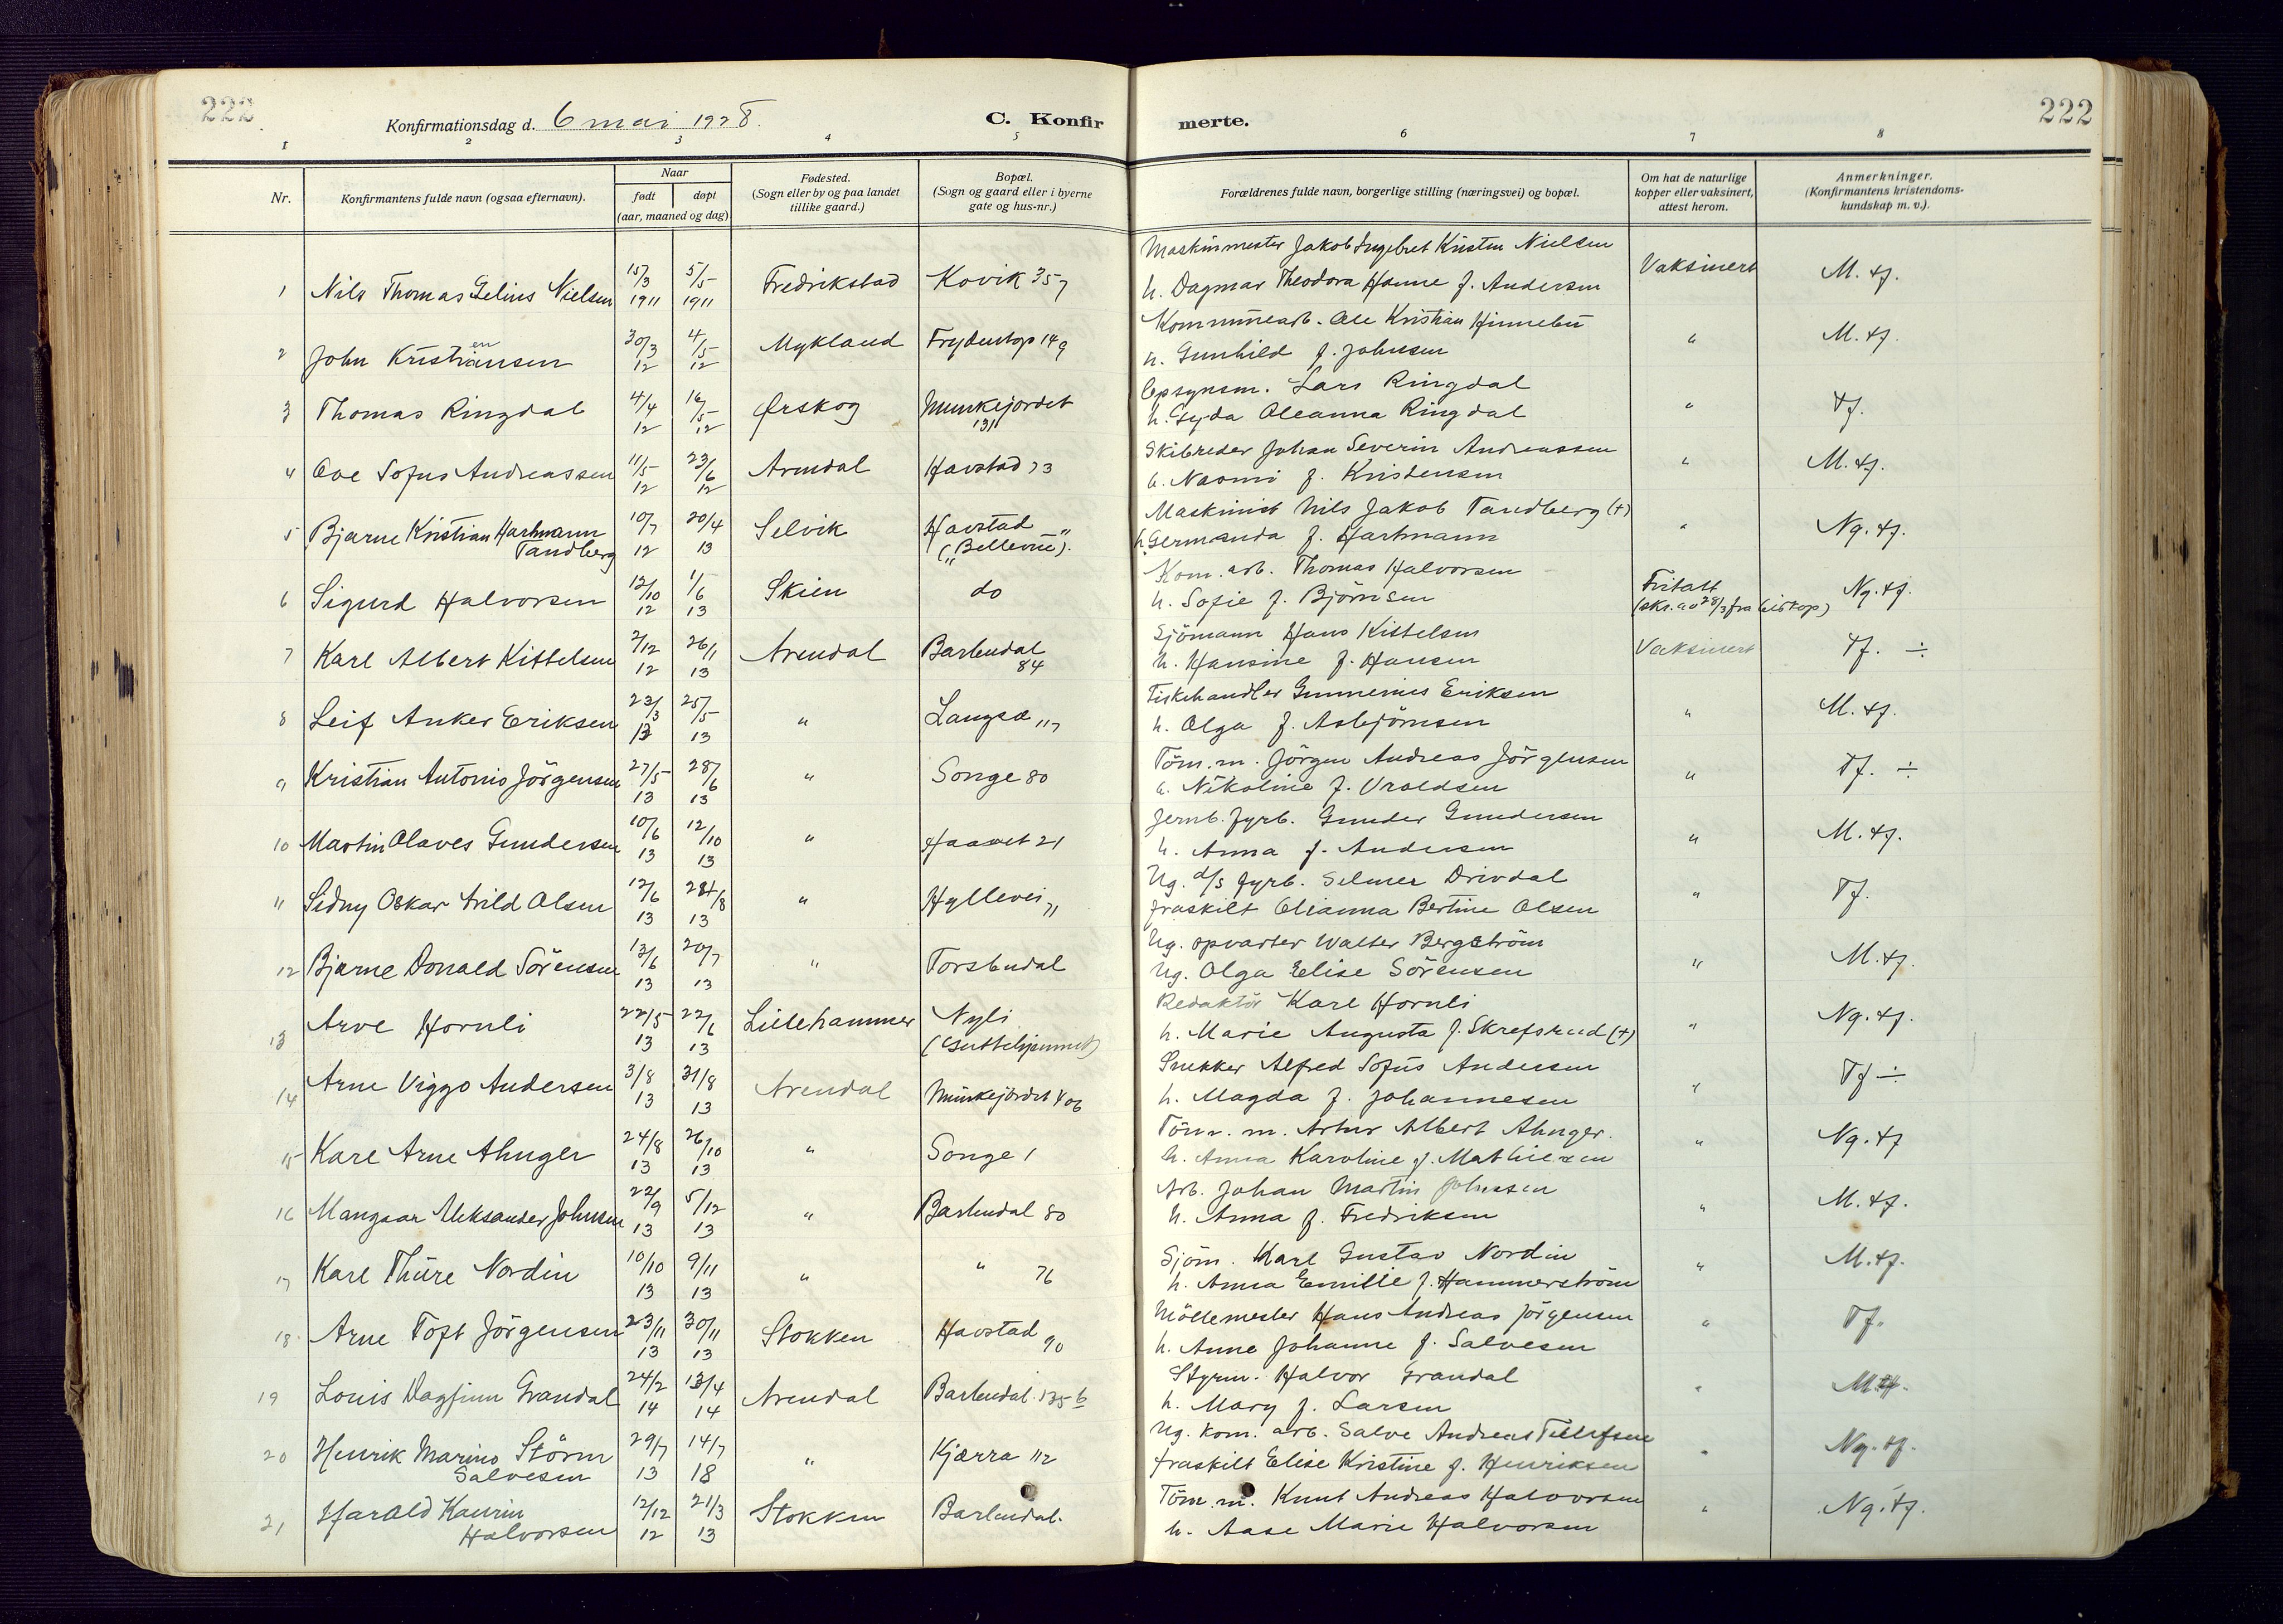 222
222
Konfirmationsdag d. 6 mai 1928.
C. Konfir merte.
1 2 3 4 5 6 7 8
Nr.
Konfirmantens fulde navn (ogsaa efternavn).
Naar
født døpt
(aar, maaned og dag)
Fødested.
(Sogn eller by og paa landet
tillike gaard.)
Bopæl.
(Sogn og gaard eller i byerne
gate og hus-nr.)
Forældrenes fulde navn, borgerlige stilling (næringsvei) og bopæl.
Om hat de naturlige
kopper eller vaksinert,
attest herom.
Anmerkninger.
(Konfirmantens kristendoms-
kundskap m. v.).
Maskinmester Jakob Ingebret Kristen Nielsen
1 Nils Thomas Gelius Nielsen 15/3 1911 5/5 1911 Fredrikstad Kovik 357
h. Dagmar Theodora Hanne f. Andersen Vaksinert M. tf.
Kommunearb. Ole Kristian Hinnebu
2 John Kristiansen en 30/3 12 4/5 12 Mykland Frydentop 149
h. Gunhild f. Johnsen " M. tf.
Opsynsm. Lars Ringdal
3 Thomas Ringdal 4/4 12 16/5 12 Ørskog Munkejordet 131
h. Gyda Oleanna Ringdal " tf.
Skibreder Johan Severin Andreassen
4 Ove Sofus Andreassen 11/5 12 23/6 12 Arendal Havstad 73
h. Naomi f. Kristensen " M. tf.
Maskinist Nils Jakob Tandberg (+)
5 Bjarne Kristian Hartmann Tandberg 10/7 12 20/4 13 Selvik Havstad "
("Bellevue").
h. Germanda f. Hartmann " Ng. tf.
Kom. arb. Thomas Halvorsen
6 Sigurd Halvorsen 12/10 12 1/6 13 Skien do
h. Sofie f. Björnsen Fritatt
(skr. av 28/3 fra biskop) Ng. tf.
Sjömann Hans Kittelsen
7 Karl Albert Kittelsen 2/12 12 26/1 13 Arendal Barbudal 84
h. Hansine f. Hansen Vaksinert Tf. ÷
Fiskehandler Gunnerius Eriksen
8 Leif Anker Eriksen 23/3 13 25/5 13 " Langsæ 117
h. Olga f. Asbjörnsen " M. tf.
Töm. m. Jörgen Andreas Jörgensen
9 Kristian Antonio Jörgensen 27/5 13 28/6 13 " Songe 80
h. Nikoline f. Vroldsen " Tf. ÷
Jernb. fyrb. Gunder Gundersen
10 Martin Olaves Gundersen 10/6 13 12/10 13 " Haavet 21
h. Anna f. Andersen " M. tf.
Ug. d/s fyrb. Selmer Drivdal
11 Sidny Oskar Arild Olsen 12/6 13 24/8 13 " Hyllevei 71
fraskilt Olianna Bertine Olsen " Tf.
Ug. opvarter Walter Bergström
12 Bjarne Donald Sörensen 13/6 13 20/7 13 " Torsbudal
Ug. Olga Elise Sörensen " M. tf.
Redaktör Karl Hornli
13 Arve Hornli 22/5 13 22/6 13 Lillehammer Nyli
(Guttehjemmet)
h. Marie Augusta f. Skrefsrud (+) " Ng. tf.
Snekker Alfred Sofus Andersen
14 Arne Viggo Andersen 3/8 13 31/8 13 Arendal Munkejordet 406
h. Magda f. Johannesen " Tf ÷
Töm. m. Artur Albert Ahnger.
15 Kare Arne Ahnger 24/8 13 26/10 13 " Songe 1
h. Anna Karoline f. Mathiesen " Ng. tf
Arb. Johan Martin Johnsen
16 Mangaar Aleksander Johnsen 22/9 13 5/12 13 " Barbudal 80
h. Anna f. Fredriksen " M. tf.
Sjöm. Karl Gustav Nordin
17 Karl Thure Nordin 10/10 13 9/11 13 " " 76
h. Anna Emilie f. Hammerström " M. tf.
Möllemester Hans Andreas Jörgensen
18. Arne Toft Jörgensen 23/11 13 30/11 13 Stokken Havstad 90
h. Anne Johanne f. Salvesen " Tf.
Styrm. Halvor Grandal
19 Louis Dagfinn Grandal 24/2 14 13/4 14 Arendal Barbudal. 135 b
h. Mary f. Larsen " M. tf.
Ug. kom. arb. Salve Andreas Tellefsen
20 Henrik Marino Störm Salvesen 29/7 13 14/7 18 " Kjærra 112
fraskilt Elise Kristine f. Henriksen " Ng. tf.
Töm. m. Knut Andreas Halvorsen
21 Harald Kaurin Halvorsen 12/12 12 21/3 13 Stokken Barbudal.
h. Aase Marie Halvorsen " Ng. tf.